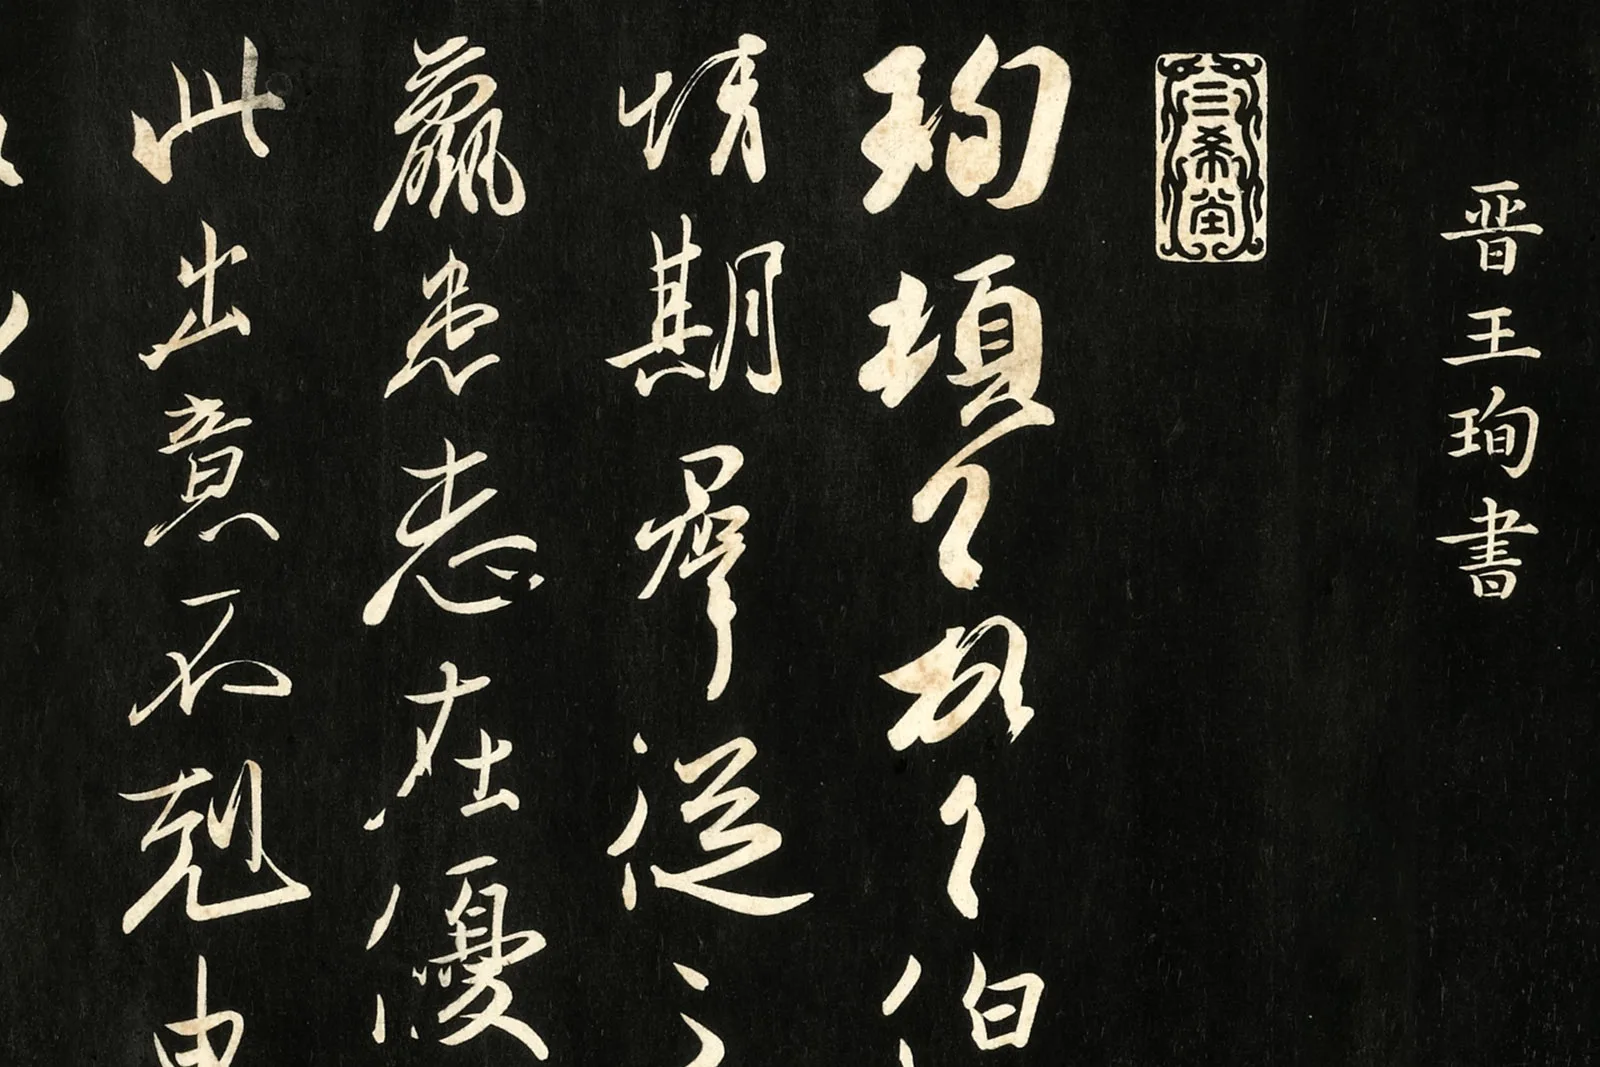 晋王珣書
三希堂
珣頓首頓首伯
情期群從之
羸患志在優
此出意不剋申